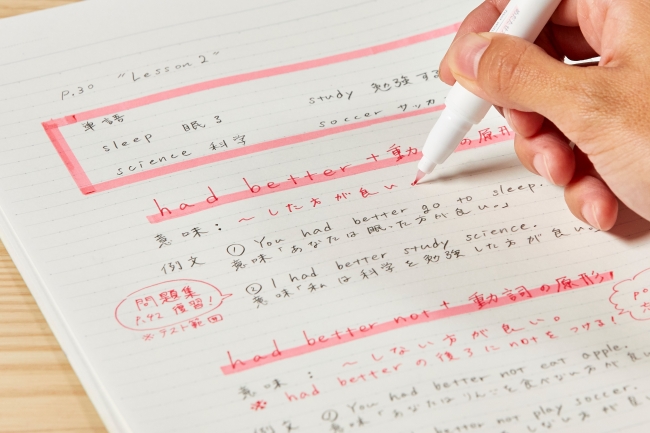 p.30 "Lesson 2"
単語
sleep 眠る
study 勉強する
science 科学
soccer サッカ
had better + 動詞の原形
意味: ~した方が良い。
例文 ① You had better go to sleep.
意味「あなたは眠った方が良い。」
② I had better study science.
意味「私は科学を勉強した方が良い。」
問題集
P.42 復習!
※テスト範囲
had better not + 動詞の原形
意味: ~しない方が良い。
※ had betterの後ろにnotをつける!
例文 ① You had better not eat apple.
意味「あなたはりんごを食べない方が良い
better not play soccer.